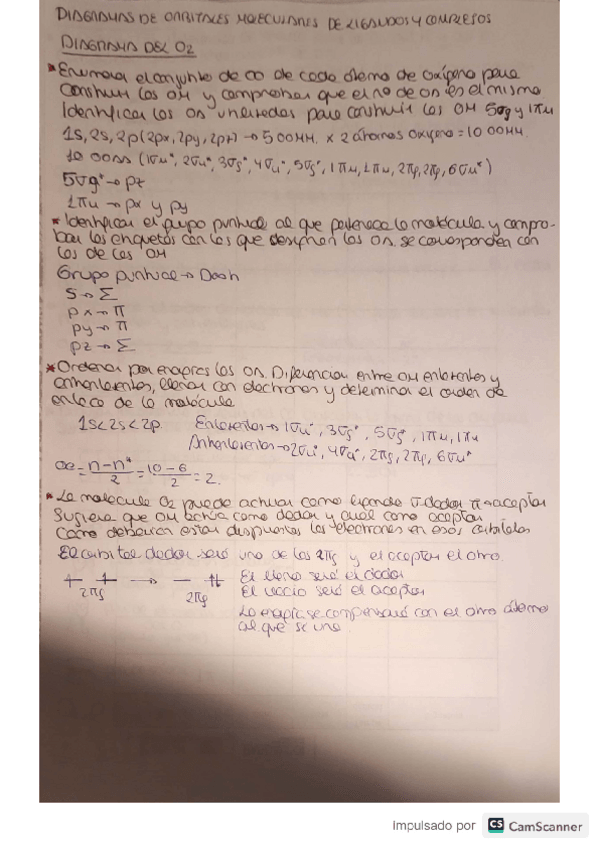 DIAGRAMAS DE ORBITALES MOLECULARES DE LIGANDOS Y COMPLEJOS
DIAGRAMA DEL O2
* Enumerar el conjunto de OA de cada átomo de oxígeno para
construir los OM y comprobar que el no de on en el mismo
Identificar los OA para construir los OM 5σg y 1πu
1s, 2s, 2p (2px, 2py, 2pz) → 5 OOAA. x 2 átomos oxígeno = 10 OOAA.
10 (1σu*, 2σu*, 3σg*, 4σu*, 5σg*, 1πu, 1πu, 2πg, 2πg, 6σu*)
5σg* → pz
1πu → px y py
* Identificar el grupo puntual al que pertenece la molécula y compro-
bar las etiquetas con las que designan los OA se corresponden con
los de los OM
Grupo puntual → D∞h
S → Σ
px → π
py → π
pz → Σ
* Ordenar por energías los OA. Diferenciar entre OM enlazantes y
antienlazantes, llenar con electrones y determina el orden de
enlace de la molécula
1s < 2s < 2p. Enlazantes → 1σu*, 3σg*, 5σg*, 1πu, 1πu
Antienlazantes → 2σu*, 4σu*, 2πg, 2πg, 6σu*
oe = n-n*/2 = 10-6/2 = 2.
* La molécula O2 puede actuar como ligando σ-dador π-aceptor
Sugiera que OM actúa como dador y cual como aceptor
Como deberían estar dispuestos los electrones en esos orbitales
El orbital dador será uno de los 2πg y el aceptor el otro.
El lleno será el dador
El vacío será el aceptor
2πg 2πg
La energía se compensará con el otro átomo
al que se une.
Impulsado por CS CamScanner